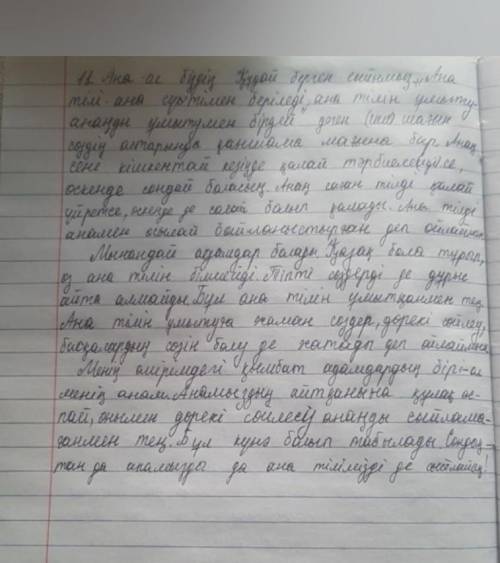 12. Ана-ол біздің Құдай берген сыйымыз. "Ана
тілі ана сүтімен беріледі, ана тілін ұмыту-
анаңды ұмытумен бірдей" деген шағын
сөздің астарында қаншама мағына бар. Анаң
сені кішкентай кезіңде қалай тәрбиелесе,
өскенде сондай боласың. Анаң саған тілді қалай
үйретсе, өскенде де солай болып қалады. Ана тілді
анамен осылай байланыстырған деп ойлаймын.
Мынандай адамдар болады. Қазақ бола тұрып,
өз ана тілін білмейді. Тіпті сөздерді де дұрыс
айта алмайды. Бұл ана тілін ұмытқанмен тең.
Ана тілін ұмытуға жаман сөздер, дөрекі сөйлеу,
басқалардың сөзін бөлу де жатады деп ойлаймын.
Менің өмірімдегі қымбат адамдардың бірі-ол
менің анам. Анамыздың айтқанына құлақ ас-
пай, онымен дөрекі сөйлесу анаңды сыйлама-
ғанмен тең. Бұл күнә болып табылады. Сондық-
тан да анамызды да ана тілімізді де сыйлайық!